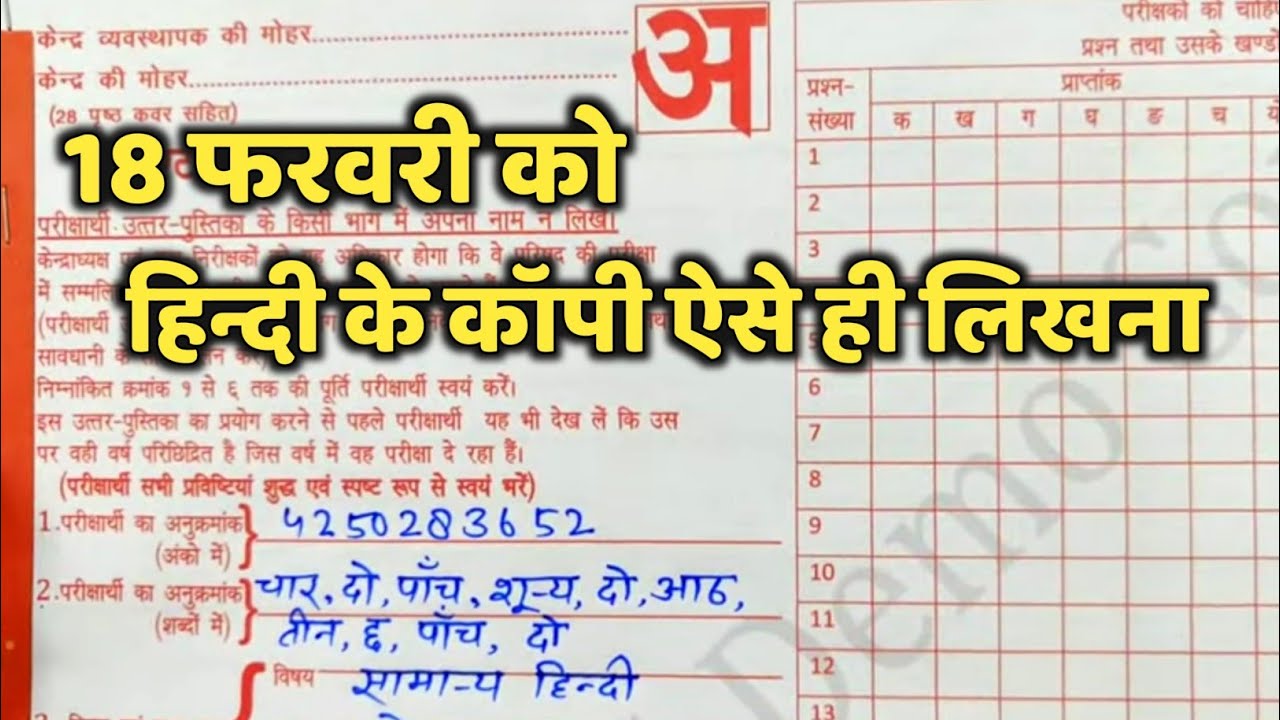 केन्द्र व्यवस्थापक की मोहर
केन्द्र की मोहर
(28 पृष्ठ कवर सहित)
अ
18 फरवरी को
परीक्षार्थी उत्तर-पुस्तिका के किसी भाग में अपना नाम न लिखें।
हिन्दी के कॉपी ऐसे ही लिखना
केन्द्राध्यक्ष निरीक्षकों होगा कि वे परिषद की परीक्षा
में
(परीक्षार्थी
सावधानी
निम्नांकित क्रमांक १ से ६ तक की पूर्ति परीक्षार्थी स्वयं करें।
इस उत्तर-पुस्तिका का प्रयोग करने से पहले परीक्षार्थी यह भी देख लें कि उस
पर वही वर्ष परिछिद्रित है जिस वर्ष में वह परीक्षा दे रहा हैं।
(परीक्षार्थी सभी प्रविष्टियां शुद्ध एवं स्पष्ट रूप से स्वयं भरें)
1.परीक्षार्थी का अनुक्रमांक 4250283652
(अंको में)
2.परीक्षार्थी का अनुक्रमांक चार, दो, पाँच, शून्य, दो, आठ,
(शब्दों में) तीन, छ, पाँच, दो
विषय सामान्य हिन्दी
परीक्षकों को
प्रश्न तथा उसके
प्रश्न- प्राप्तांक
संख्या क ख ग घ ङ च
1
2
3
6
7
8
9
10
11
12
13
Demo